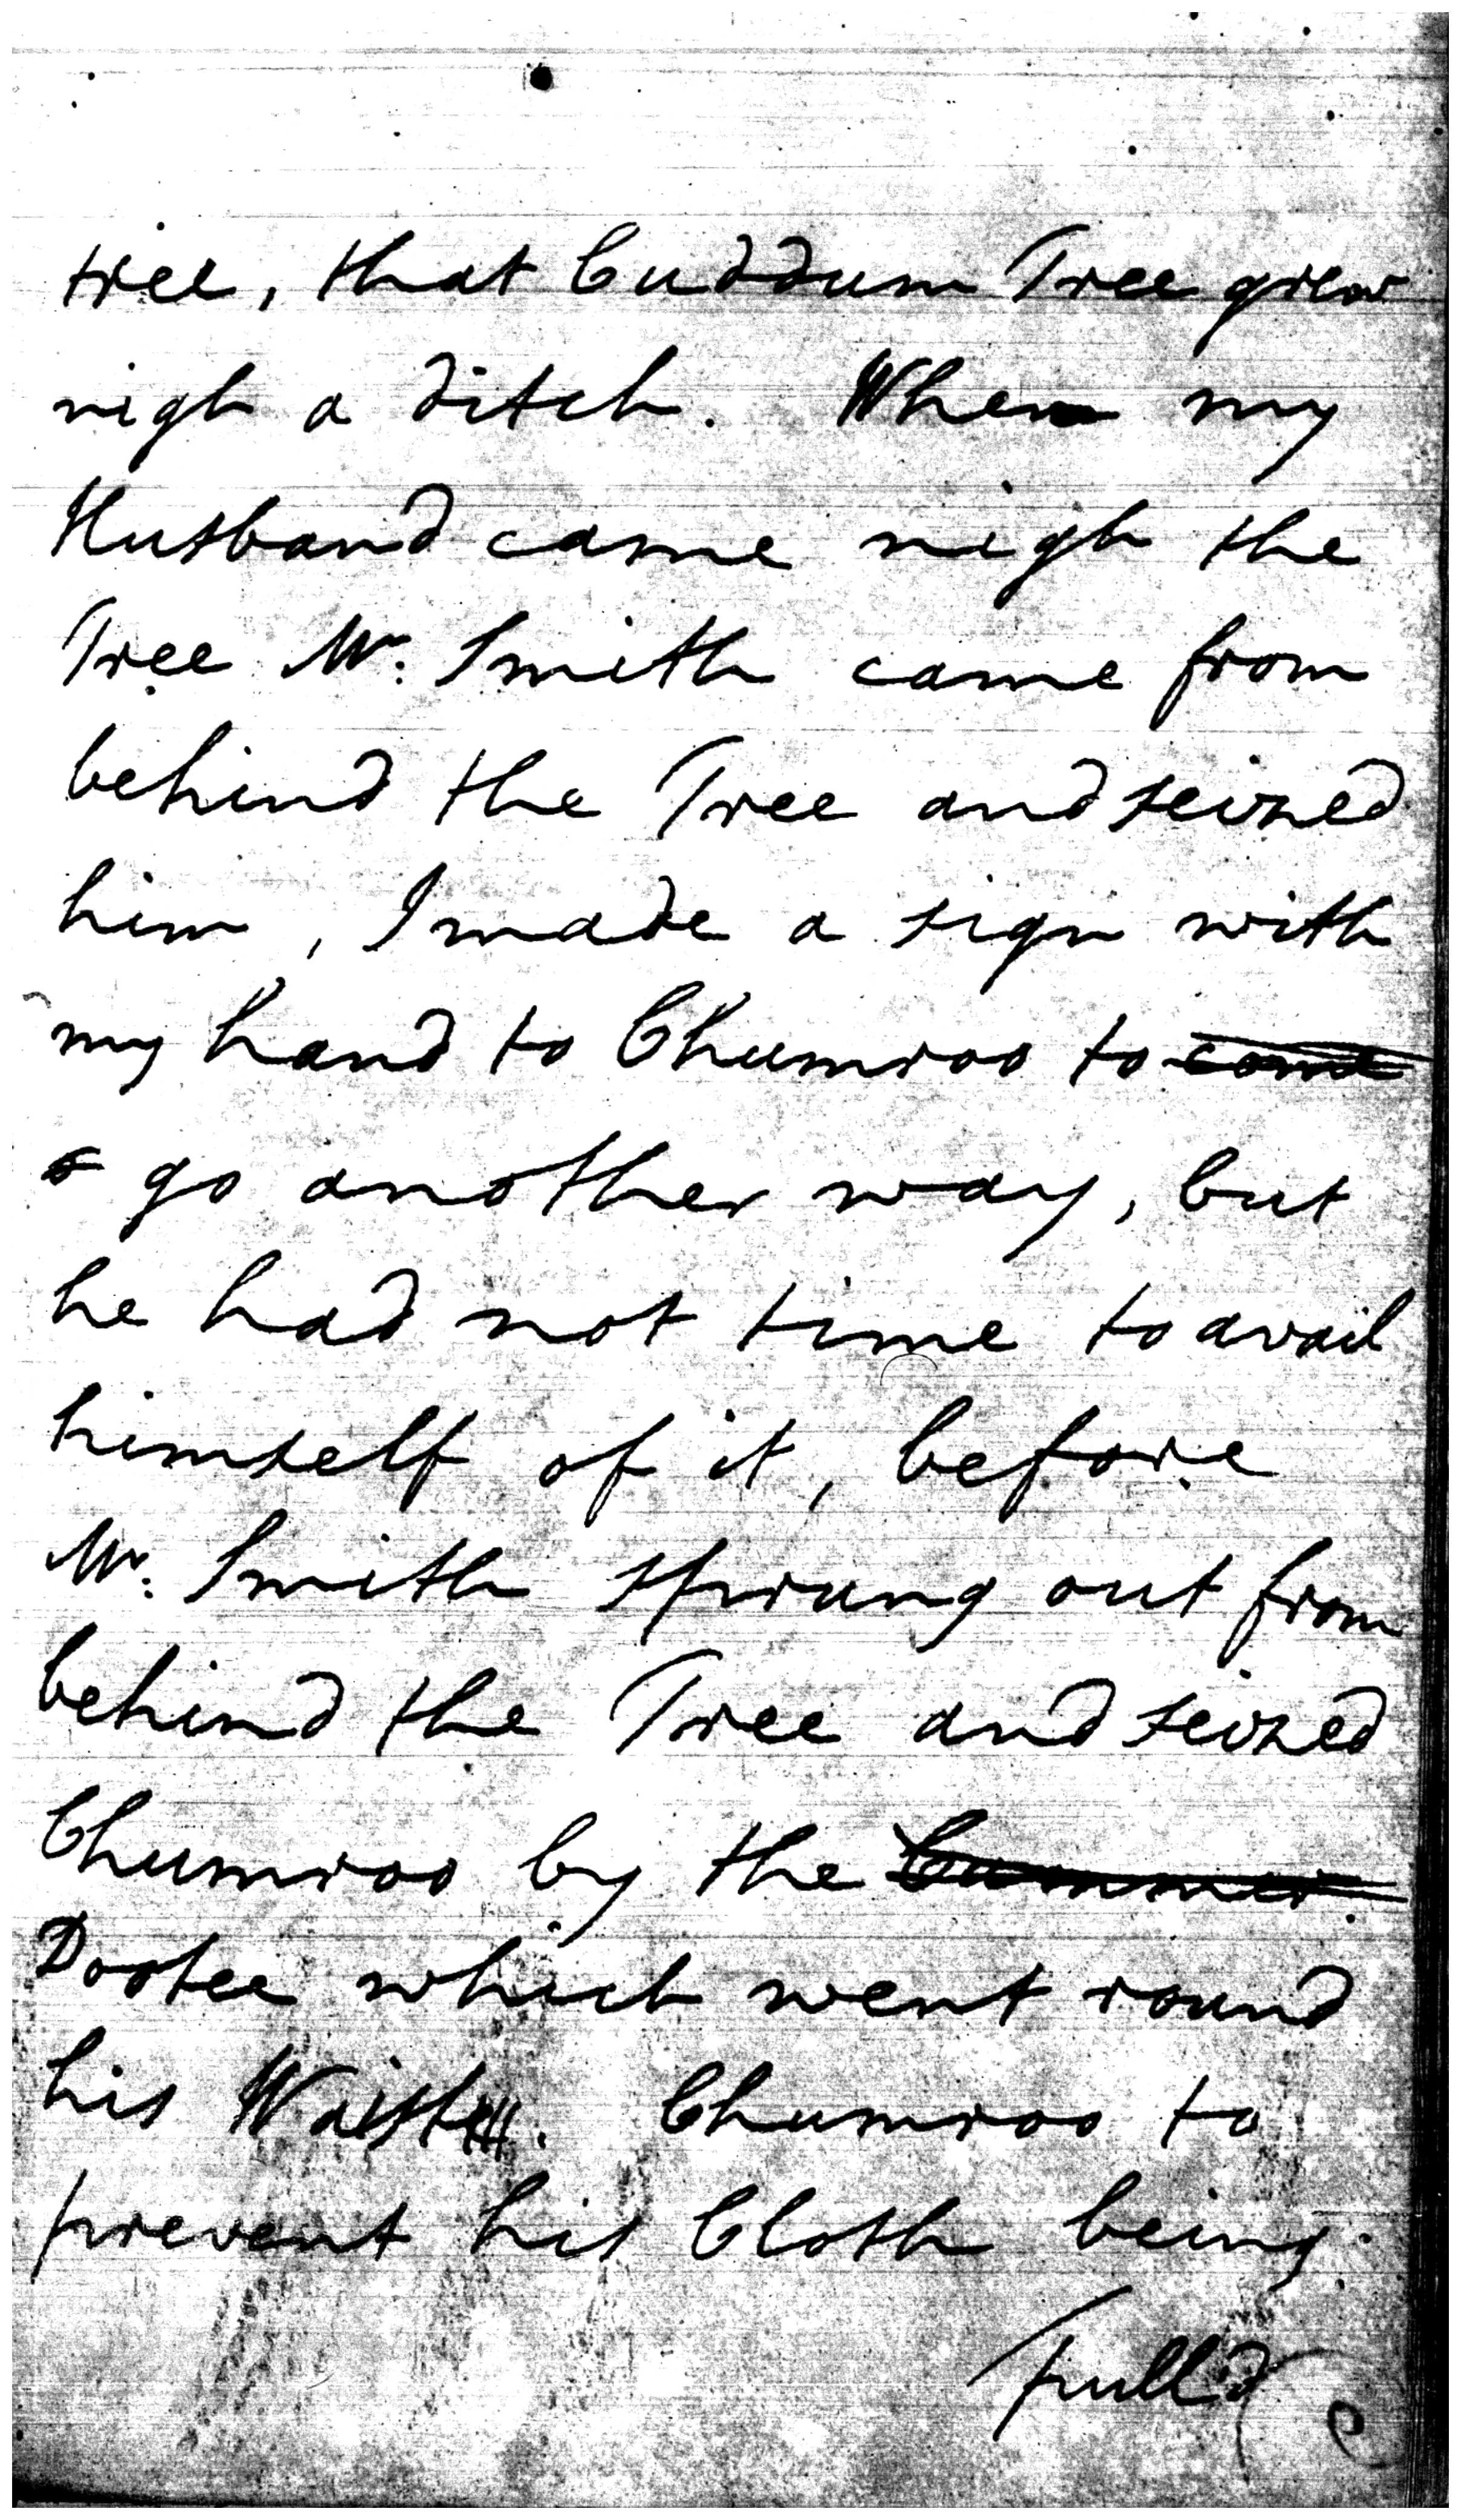 tree, that Cuddum Tree grew
nigh a ditch. When my
Husband came nigh the
Tree Mr. Smith came from
behind the Tree and seized
him, I made a sign with
my hand to Chumroo to come
go another way, but
he had not time to avail
himself of it, before
Mr. Smith sprung out from
behind the Tree and seized
Chumroo by the Cummer
Dootee which went round
his Waist. Chumroo to
prevent his Cloth being
pull'd